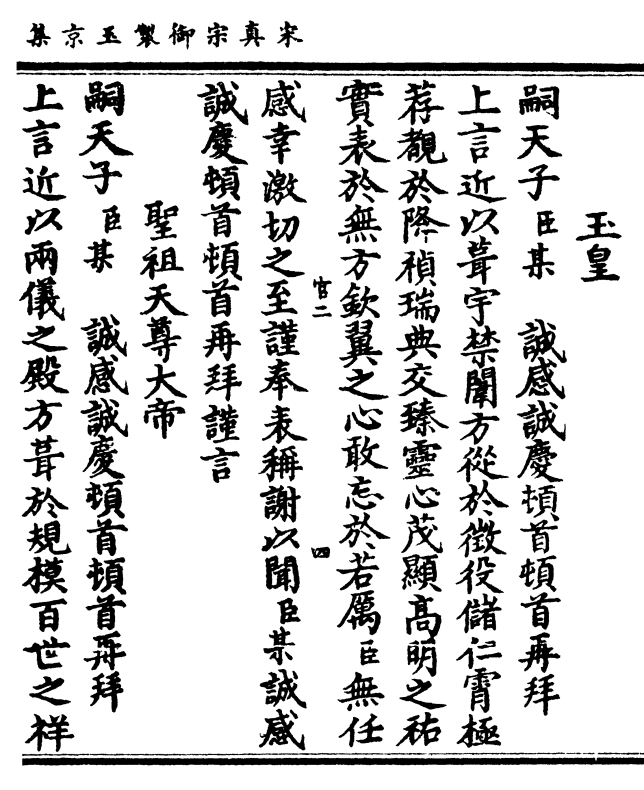 宋真宗御製玉京集
玉皇
嗣天子臣某　誠感誠慶頓首頓首再拜
上言近以葺宇禁闈方從於徵役儲仁霄極
荐覩於降禎瑞典交臻靈心茂顯高明之祐
實表於無方欽翼之心敢忘於若厲臣無任
官二　四
感幸激切之至謹奉表稱謝以聞臣某誠感
誠慶頓首頓首再拜謹言
聖祖天尊大帝
嗣天子臣某　誠感誠慶頓首頓首再拜
上言近以兩儀之殿方葺於規模百世之祥